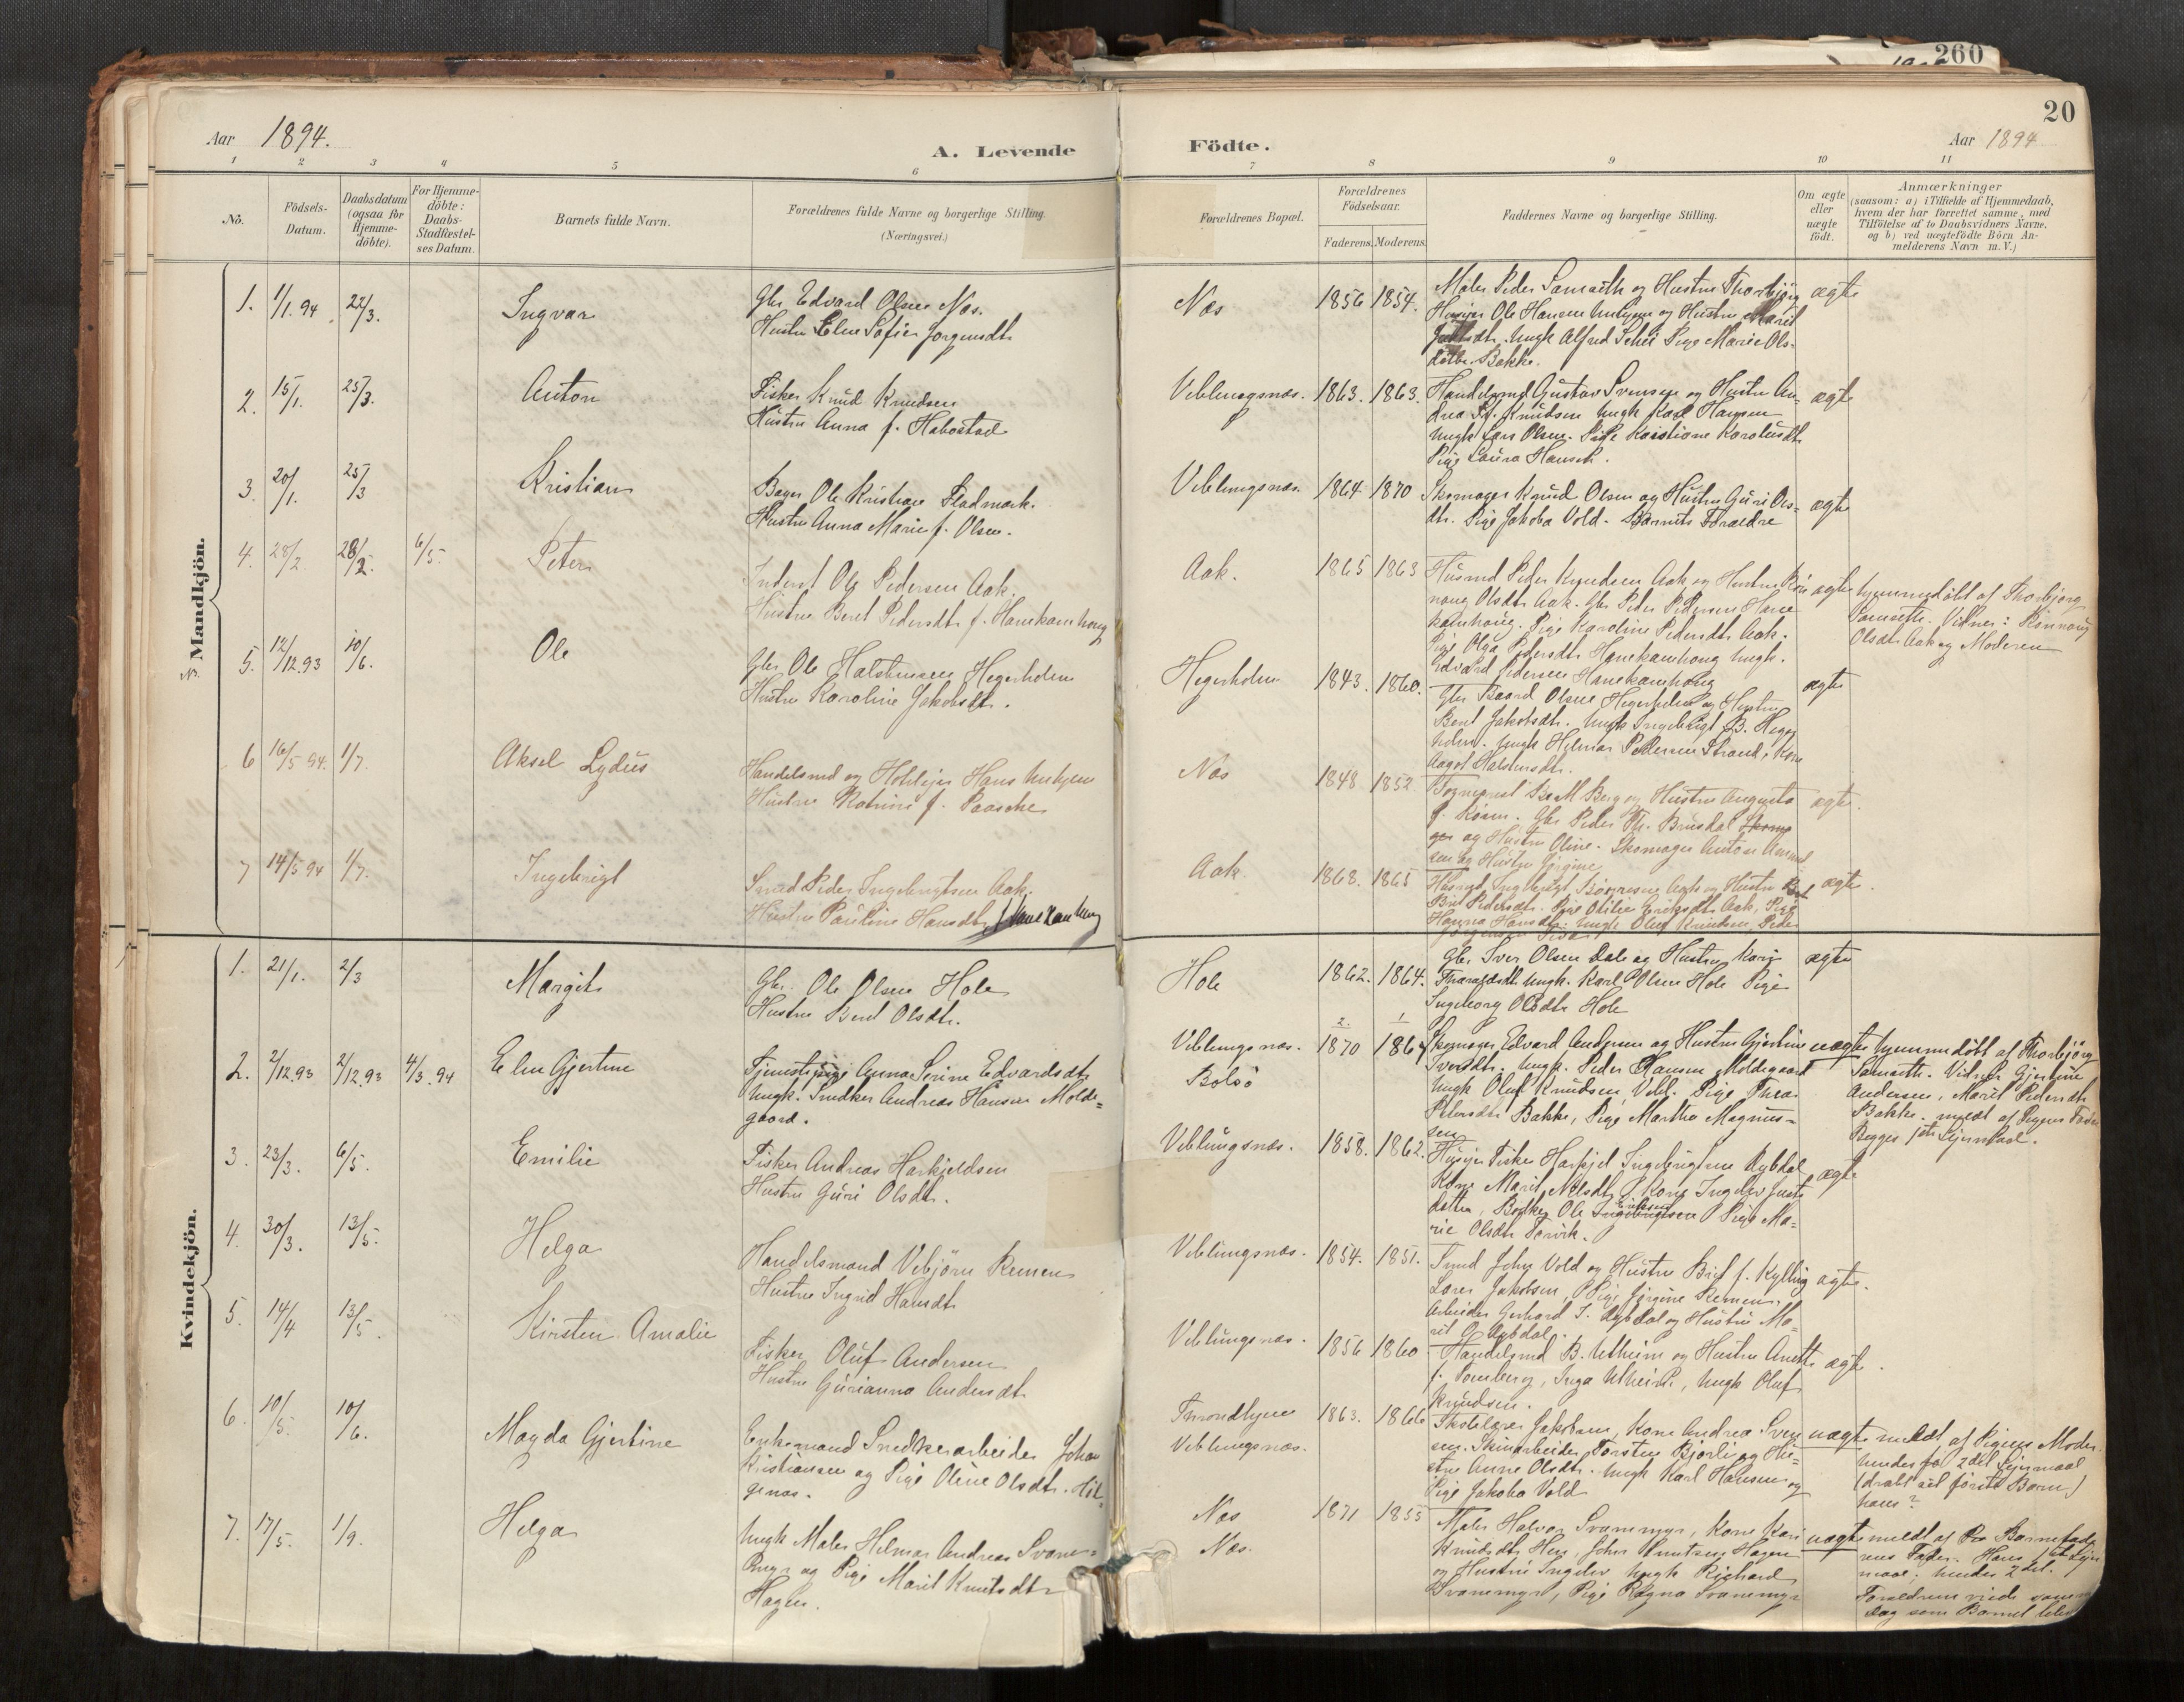 260
20
Aar 1894.
A. Levende
Födte.
Aar 1894
1 2 3 4 5 6 7 8 9 10 11
No.
Födsels-
Datum.
Daabsdatum
(ogsaa for
Hjemme-
döbte).
For Hjemme-
döbte:
Daabs-
Stadfæstel-
ses Datum.
Barnets fulde Navn.
Forældrenes fulde Navne og borgerlige Stilling.
(Næringsvei.)
Forældrenes Bopæl.
Forældrenes
Födselsaar.
Faderens. Moderens.
Faddernes Navne og borgerlige Stilling.
Om ægte
eller
uægte
födt.
Anmærkninger
(saasom: a) i Tilfælde af Hjemmedaab,
hvem der har forrettet samme, med
Tilföielse af to Daabsvidners Navne,
og b) ved uægtefödte Börn An-
melderens Navn m. V.)
Mandkjön.
1. 1/1. 94 22/3. Ingvar
Gbr. Edvard Olsen Næs.
Hustru Eline Sofie Jørgensdtr
Næs 1856 1854.
Maler Peder Samseth og Hustru Thorbjörg
Ole Hansen og Hustru Marit
Ungk Alfred Pige Marie Ols-
datter Bakke.
ægte
2. 15/1. 25/3. Anton
Fisker Knud Knudsen
Hustru Anna f. Habostad
Veblungsnæs. 1863. 1863.
Handelsmd Gustav Svensen og Hustru An-
drea f. Knudsen Ungk Karl Hansen
Ungk Lars Olsen. Pige Kristiane Karolusdtr
Pige Laura Hansen.
ægte
3. 20/1. 25/3 Kristian
Bager Ole Kristian Fladmark.
Hustru Anna Marie f. Olsen.
Veblungsnæs. 1864 1870
Skomager Knud Olsen og Hustru Guri Ols-
dtr. Pige Jakoba Vold. Barnets Forældre
ægte
4. 28/2 28/2. 6/5. Peter
Inderst Ole Pedersen Aak.
Hustru Beret Pedersdtr f. Hanekamhoug
Aak. 1865 1863
Husmd Peder Knudsen Aak og Hustru Rön-
noug Olsdtr Aak. Gbr Peder Pedersen Hane-
kamhoug. Pige Karoline Pedersdtr Aak.
Pige Olga Pedersdtr Hanekamhoug Ungk.
Edvard Pedersen Hanekamhoug
ægte
hjemmedöbt af Thorbjørg
Samseth. Vidner: Rönnoug
Olsdtr Aak og Moderen
5. 12/12.93 10/6. Ole
Gbr Ole Halstensen Hegerholm
Hustru Karoline Jakobsdtr.
Hegerholm 1843. 1860.
Gbr Baard Olsen Hegerholm og Hustru
Beret Jakobsdtr. Ungk Ingebrigt B. Heger-
holm. Ungk Helmer Pedersen Strand, Kone
Aagot Halstensdtr.
ægte
6 16/5 94. 1/7. Aksel Lydus
Handelsmd og Hotelejer Hans Unhjem
Hustru Katrine f. Paasche
Næs 1848. 1852.
Berg og Hustru Augusta
f. Gbr Peder Th. Brusdal
og Hustru Oline. Skomager Anton
sen og Hustru
ægte.
7 14/5 94 1/7. Ingebrigt
Smed Peder Ingebrigtsen Aak.
Hustru Pauline Hansdtr Hanekamhoug
Aak 1868. 1865
Husmd Ingebrigt Aak og Hustru
Pedersdtr. Pige Otilie Eriksdtr Aak, Pige
Hanna Hansdtr. Ungk Oluf Knudsen, Peder
ægte.
Kvindekjön.
1. 21/1. 2/3 Margit
Gbr. Ole Olsen Hole
Hustru Beret Olsdtr.
Hole 1862. 1864.
Gbr. Iver Olsen Dale og Hustru Kari
Tharaldsdtr Ungk. Karl Olsen Hole Pige
Ingeborg Olsdtr Hole
ægte
2. 2/12.93 2/12.93 4/3.94 Elen Gjertine
Tjenestepige Anna Serine Edvardsdtr
Ungk. Snedker Andreas Hansen Molde-
gaard.
Veblungsnæs.
Bolsö
2. 1
1870 1864
Skomager Edvard Andersen og Hustru Gjertine
Iversdtr. Ungk. Peder Hansen Moldegaard
Ungk Oluf Knudsen Vebl. Pige Thea
Petersdtr Bakke, Pige Martha Magnus-
sen
uægte
hjemmedöbt af Thorbjörg
Samseth. Vidner Gjertine
Andersen, Marit Pedersdtr
Bakke. meldt af Pigens Fader
Begges 1ste Lejermaal.
3. 23/3. 6/5. Emilie
Fisker Andreas Harkjeldsen
Hustru Guri Olsdtr.
Veblungsnæs. 1858. 1862.
Husejer Fisker Harkjel Ingebrigtsen Rybdal
Kone Marit Nilsdtr, Kone Ingelev
datter, Bödker Ole Ingebrigtsen Eriksen Pige Ma-
rie Olsdtr Torvik.
ægte
4. 30/3. 13/5. Helga
Handelsmand Vebjörn Remen
Hustru Ingrid Hansdtr
Veblungsnæs. 1854. 1851.
Smed John Vold og Hustru Brit f. Kylling
Jakobsen, Pige Jörgine Remen.
Arbeider Gerhard I. Rybdal og Hustru Ma-
rit O. Rybdal.
ægte.
5. 14/4 13/5. Kirsten Amalie
Fisker Oluf Andersen
Hustru Gurianna Andersdtr
Veblungsnæs. 1856 1860
Handelsmd B. Utheim og Hustru Anette
f. Inga Utheim, Ungk Oluf
Knudsen.
ægte.
6. 10/5. 10/6. Magda Gjertine
Enkemand Snedkerarbeider Johan
Kristiansen og Pige Oline Olsdtr. Hel-
genæs.
Throndhjem
Veblungsnæs.
1863. 1866
Jakobsen, Kone Andrea Sven-
sen. Skinarbeider Torsten Bjorli og Hu-
stru Anne Olsdtr. Ungk Karl Hansen og
Pige Jakoba Vold
uægte
meldt af Pigens Moder.
hendes 2det Lejermaal
(dræbt sit förste Barn)
hans?
7. 17/5. 1/9. Helga
Ungk Maler Helmer Andreas Svane-
myr og Pige Marit Knutsdtr
Hagen.
Næs
Næs.
1871 1855
Maler Halvor Svanemyr, Kone Kari
Knudsdtr Hen, John Knutsen Hagen
og Hustru Ingelev Ungk Richard
Svanemyr, Pige Ragna Svanemyr
uægte
meldt af Barnefade-
rens Fader. Hans 1ste Lejer-
maal; hendes 2det.
Forældrene viede samme
Dag som Barnet